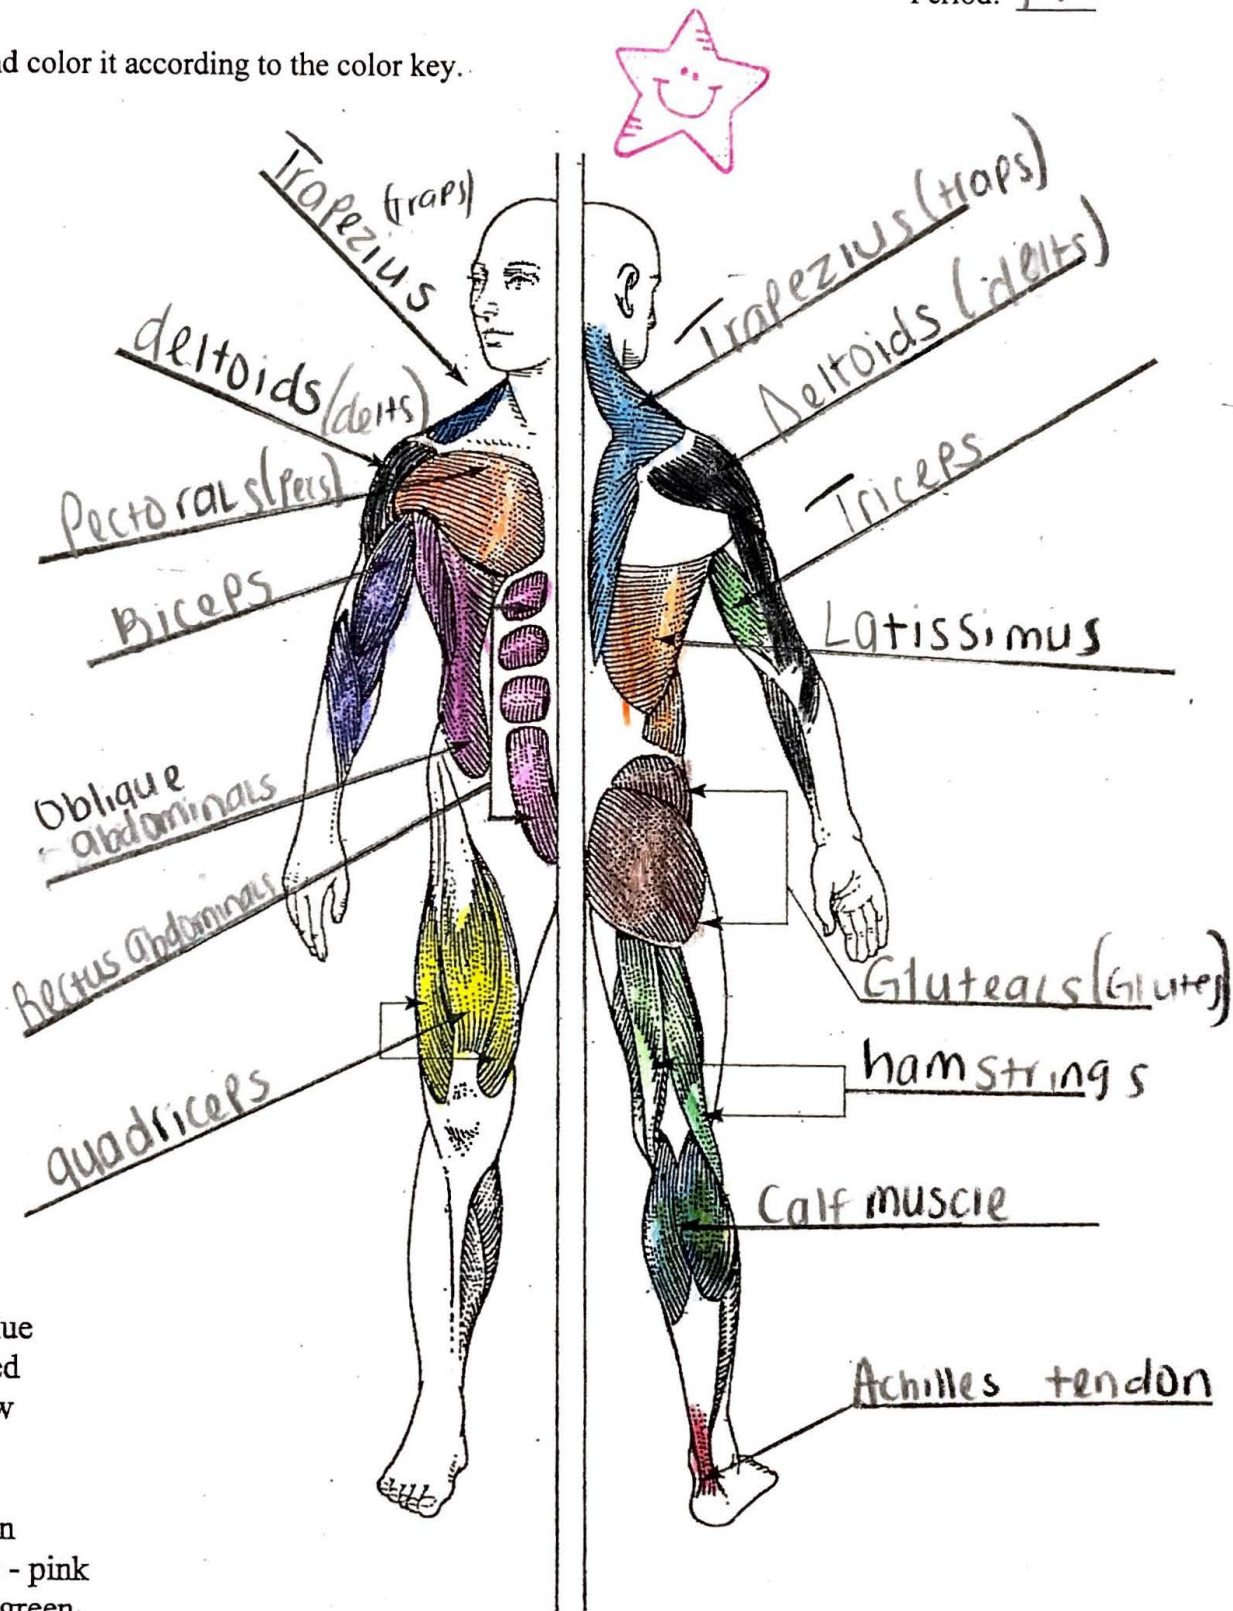 Period:
d color it according to the color key.
Trapezius (traps)
deltoids (delts)
Pectorals (Pecs)
Biceps
Oblique
abdominals
Rectus Abdominals
quadriceps
Trapezius (traps)
Deltoids (delts)
Triceps
Latissimus
Gluteals (Glutes)
hamstrings
Calf muscle
Achilles tendon
ue
ed
w
n
- pink
green